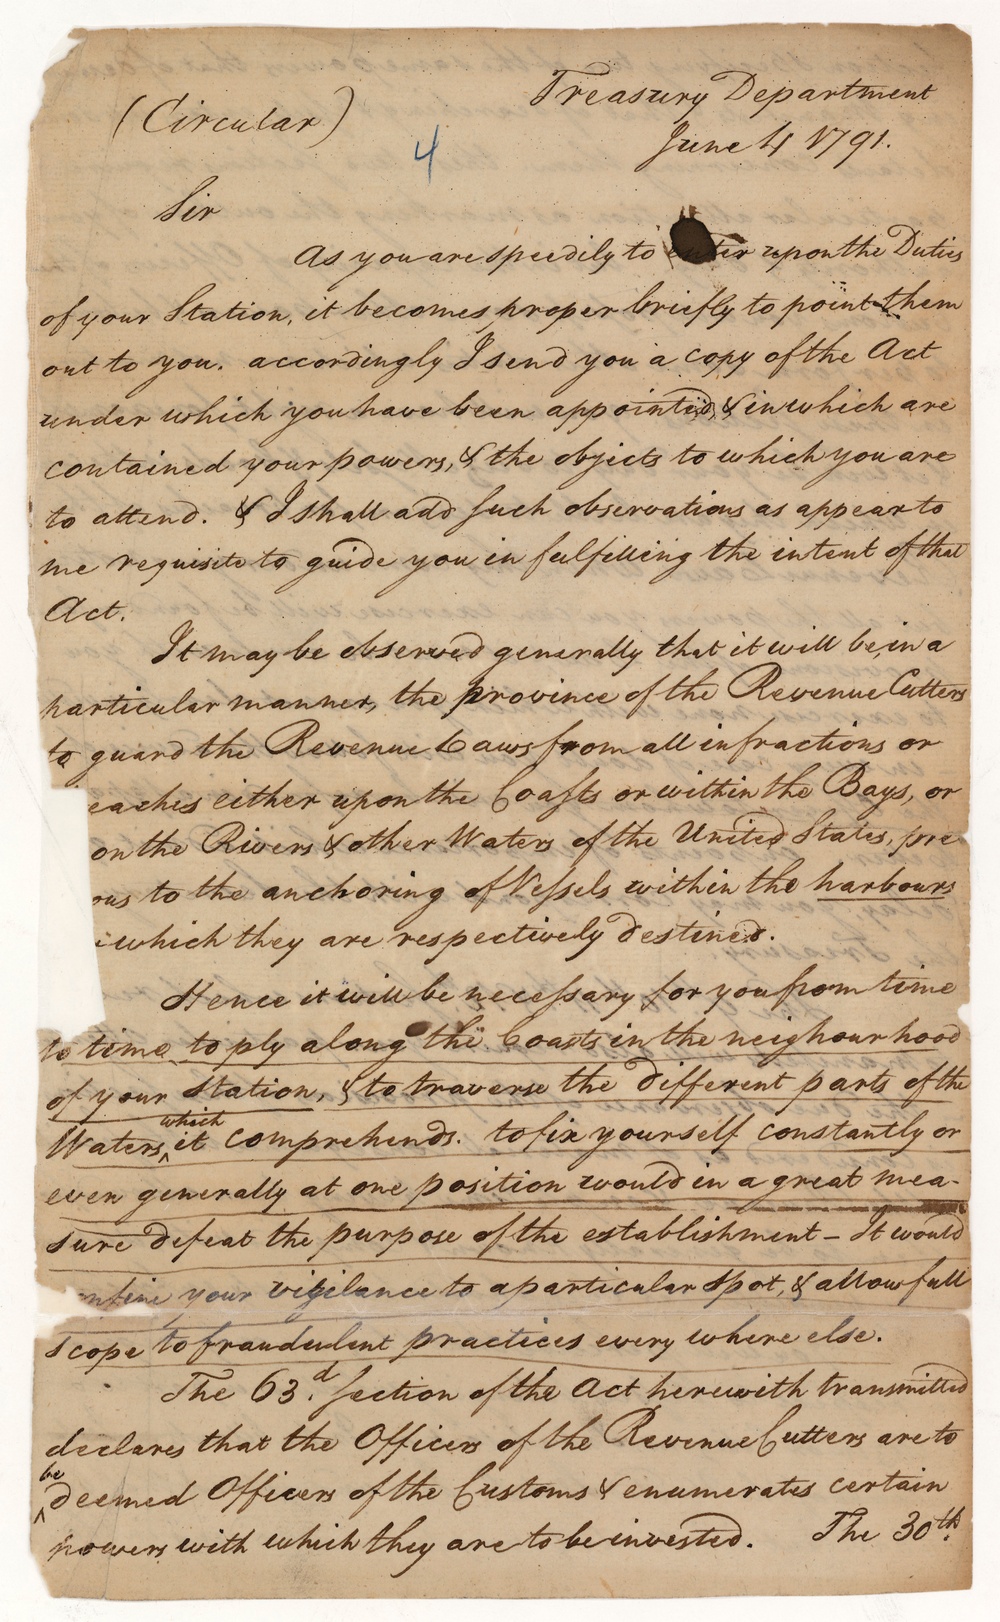 (Circular)
Treasury Department
4
June 4 1791.
Sir
As you are speedily to enter upon the Duties
of your Station, it becomes proper briefly to point them
out to you. accordingly I send you a copy of the Act
under which you have been appointed, & in which are
contained your powers, & the objects to which you are
to attend. & I shall add such observations as appear to
me requisite to guide you in fulfilling the intent of that
Act.
It may be observed generally that it will be, in a
particular manner, the province of the Revenue Cutters
to guard the Revenue Laws from all infractions or
eaches either upon the Coasts or within the Bays, or
on the Rivers & other Waters of the United States, pre
ous to the anchoring of Vessels within the harbours
which they are respectively destined.
Hence it will be necessary for you from time
to time to ply along the Coasts in the neighourhood
of your Station, & to traverse the different parts of the
which
Waters, ^ it comprehends. to fix yourself constantly or
even generally at one position would in a great mea-
sure defeat the purpose of the establishment – It would
onfine your vigilance to a particular spot, & allow full
scope to fraudulent practices every where else.
The 63.d section of the Act herewith transmitted
declares that the Officers of the Revenue Cutters are to
be
^ deemed Officers of the Customs & enumerates certain
powers with which they are to be invested. The 30th.